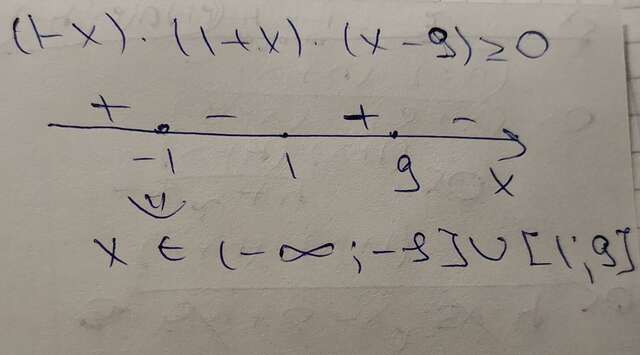 (1-x)·(1+x)·(x-9)≥0
+ - + -
-1 1 9 x
x ∈ (-∞;-9]∪[1;9]